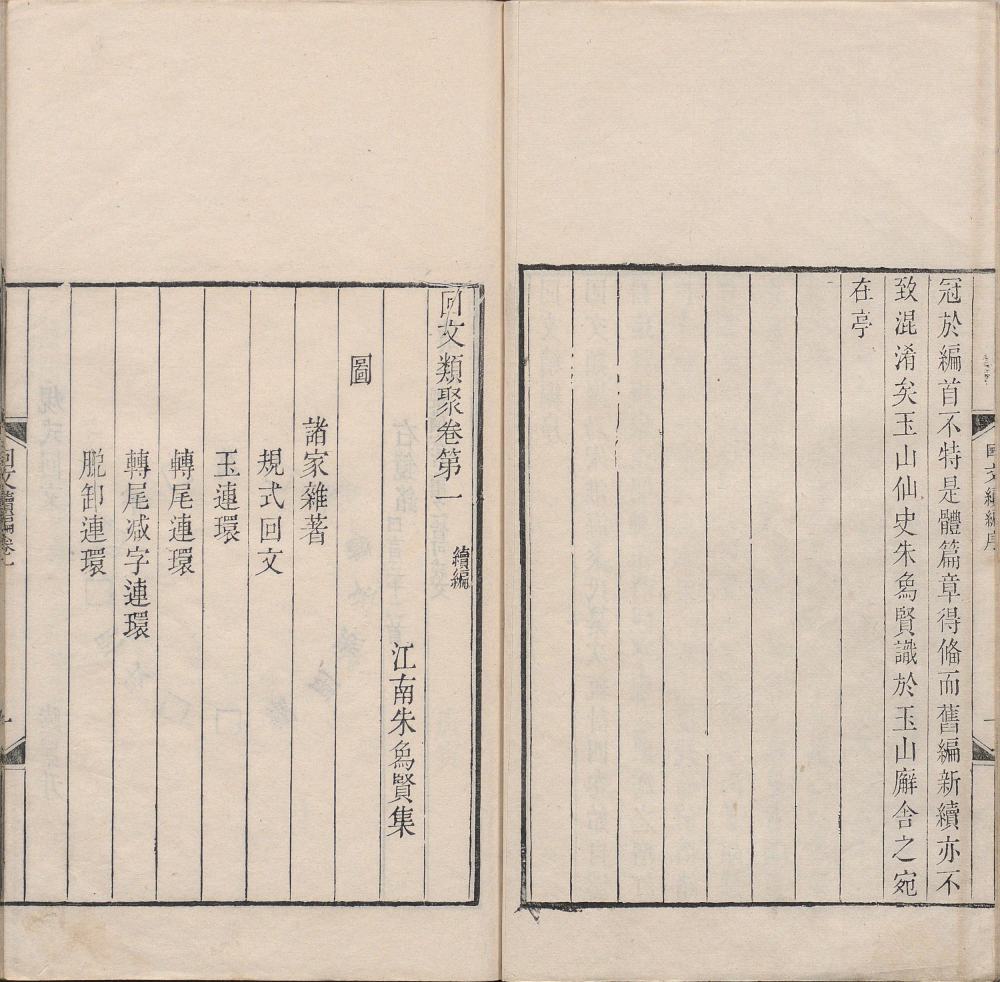 冠於編首不特是體篇章得俻而舊編新續亦不
致混淆矣玉山仙史朱象賢識於玉山廨舍之宛
在亭
回文類聚卷第一 續編
江南朱象賢集
圖
諸家雜著
規式回文
玉連環
轉尾連環
轉尾減字連環
脫卸連環